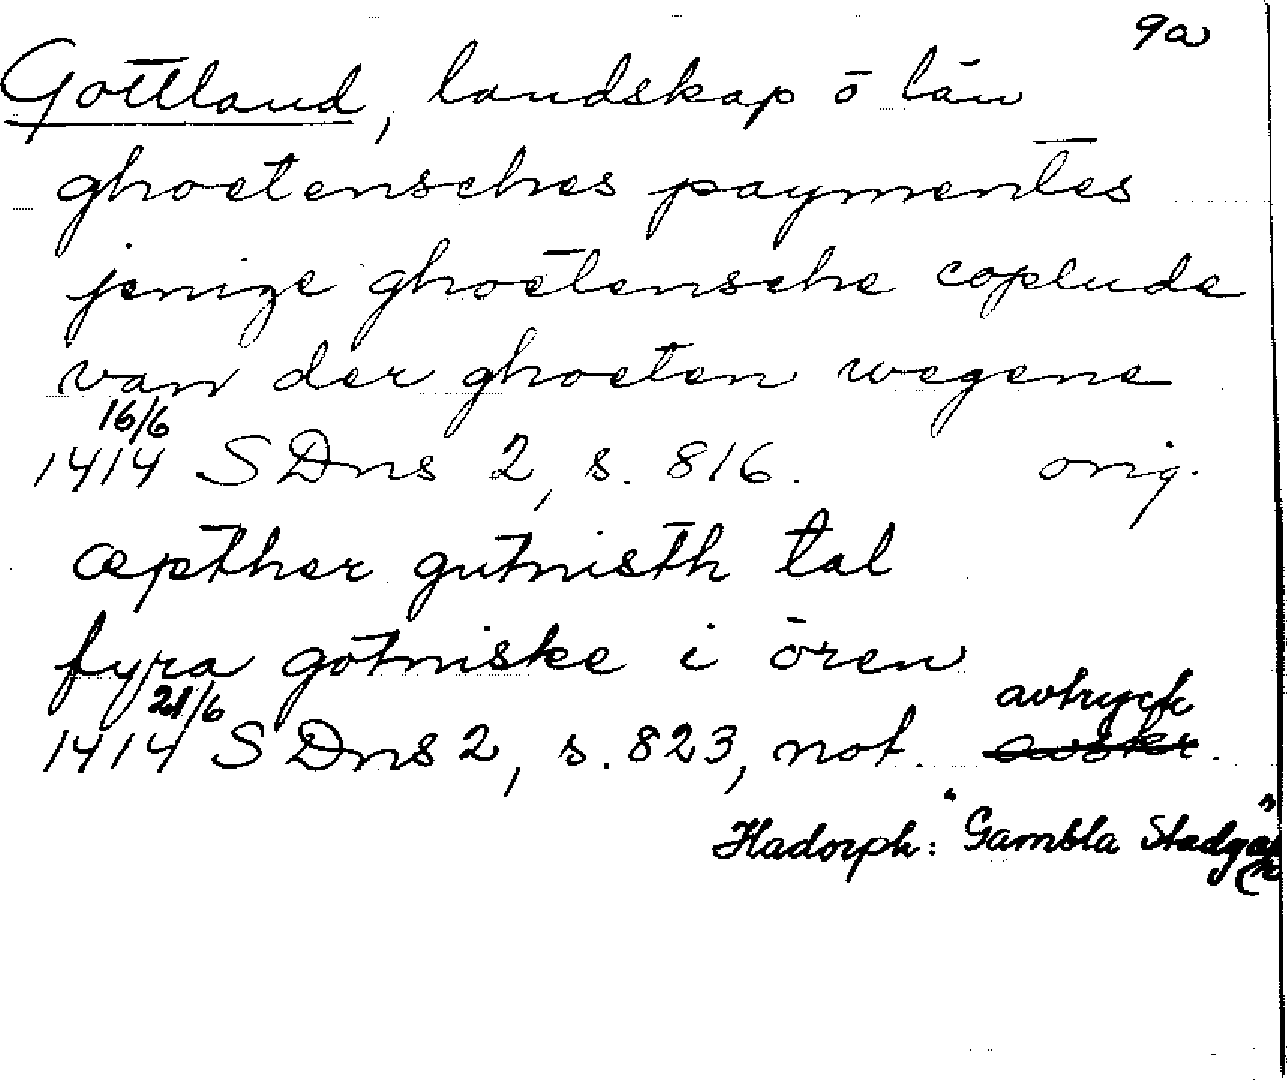 9a
Gottland, landskap o län
ghoetensches paymentes
jenige ghoetensche coplude
van der ghoeten wegene
16/6
1414 SDns 2, s. 816. orig.
æpther gutnisth tal
fyra gotniske i ören
21/6 avtryck
1414 SDns 2, s. 823, not. avskr.
Hadorph: "Gambla Stadgar"